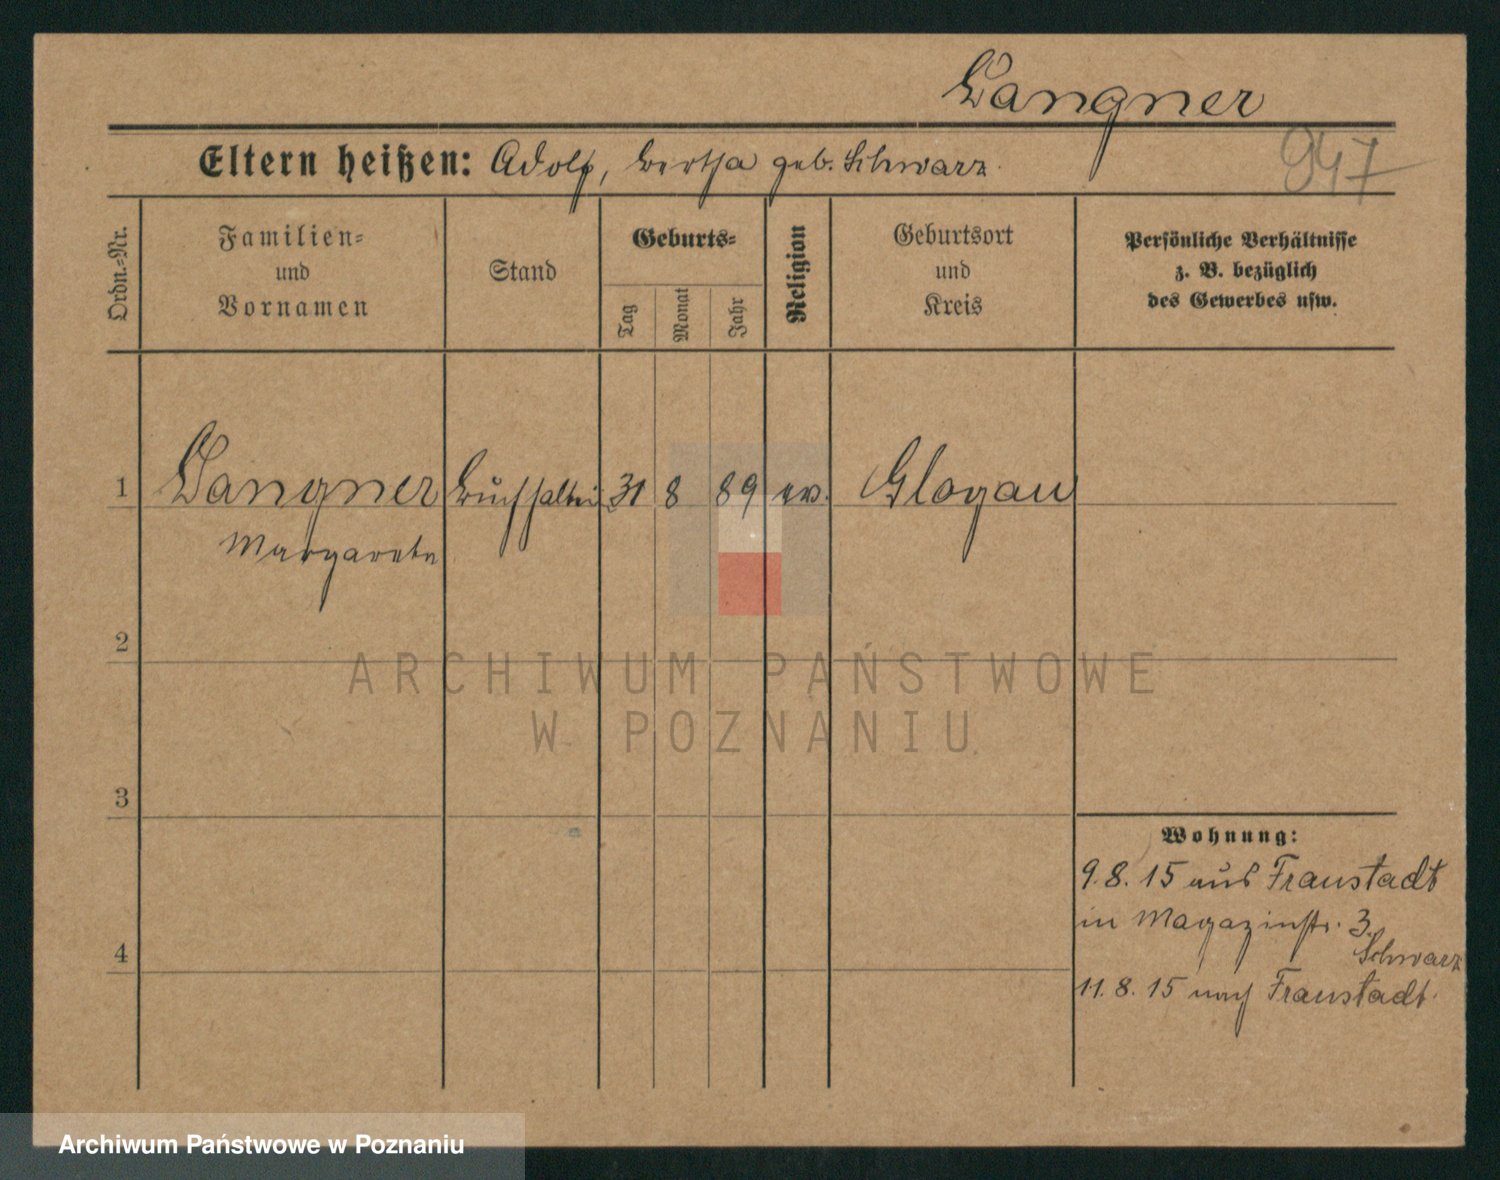 Langner
947
Eltern heißen: Adolf, Bertha geb. Schwarz.
Ordn.-Nr.
Familien-
und
Vornamen
Stand
Geburts-
Tag
Monat
Jahr
Religion
Geburtsort
und
Kreis
Persönliche Verhältnisse
z. B. bezüglich
des Gewerbes usw.
1 Langner Buchhalterin 31 8 89 ev. Glogau
Margarete
2
3
4
Wohnung:
9.8.15 aus Fraustadt
in Magazinstr. 3.
Schwarz
11.8.15 nach Fraustadt.
ARCHIWUM PAŃSTWOWE
W POZNANIU
Archiwum Państwowe w Poznaniu